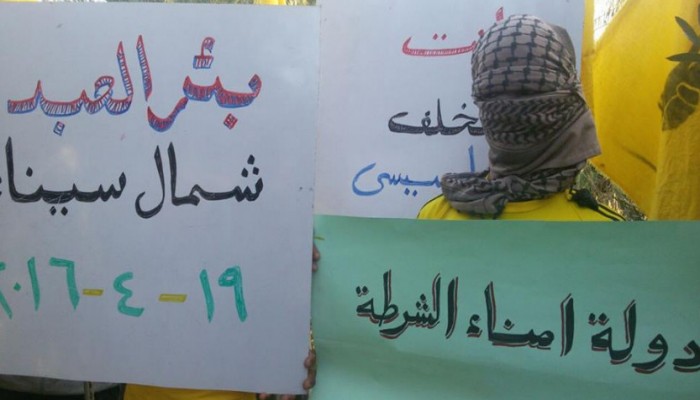 بئر العبد
شمال سيناء
١٩-٤-٢٠١٦
انت
تخلف
السيسي
دولة امناء الشرطة